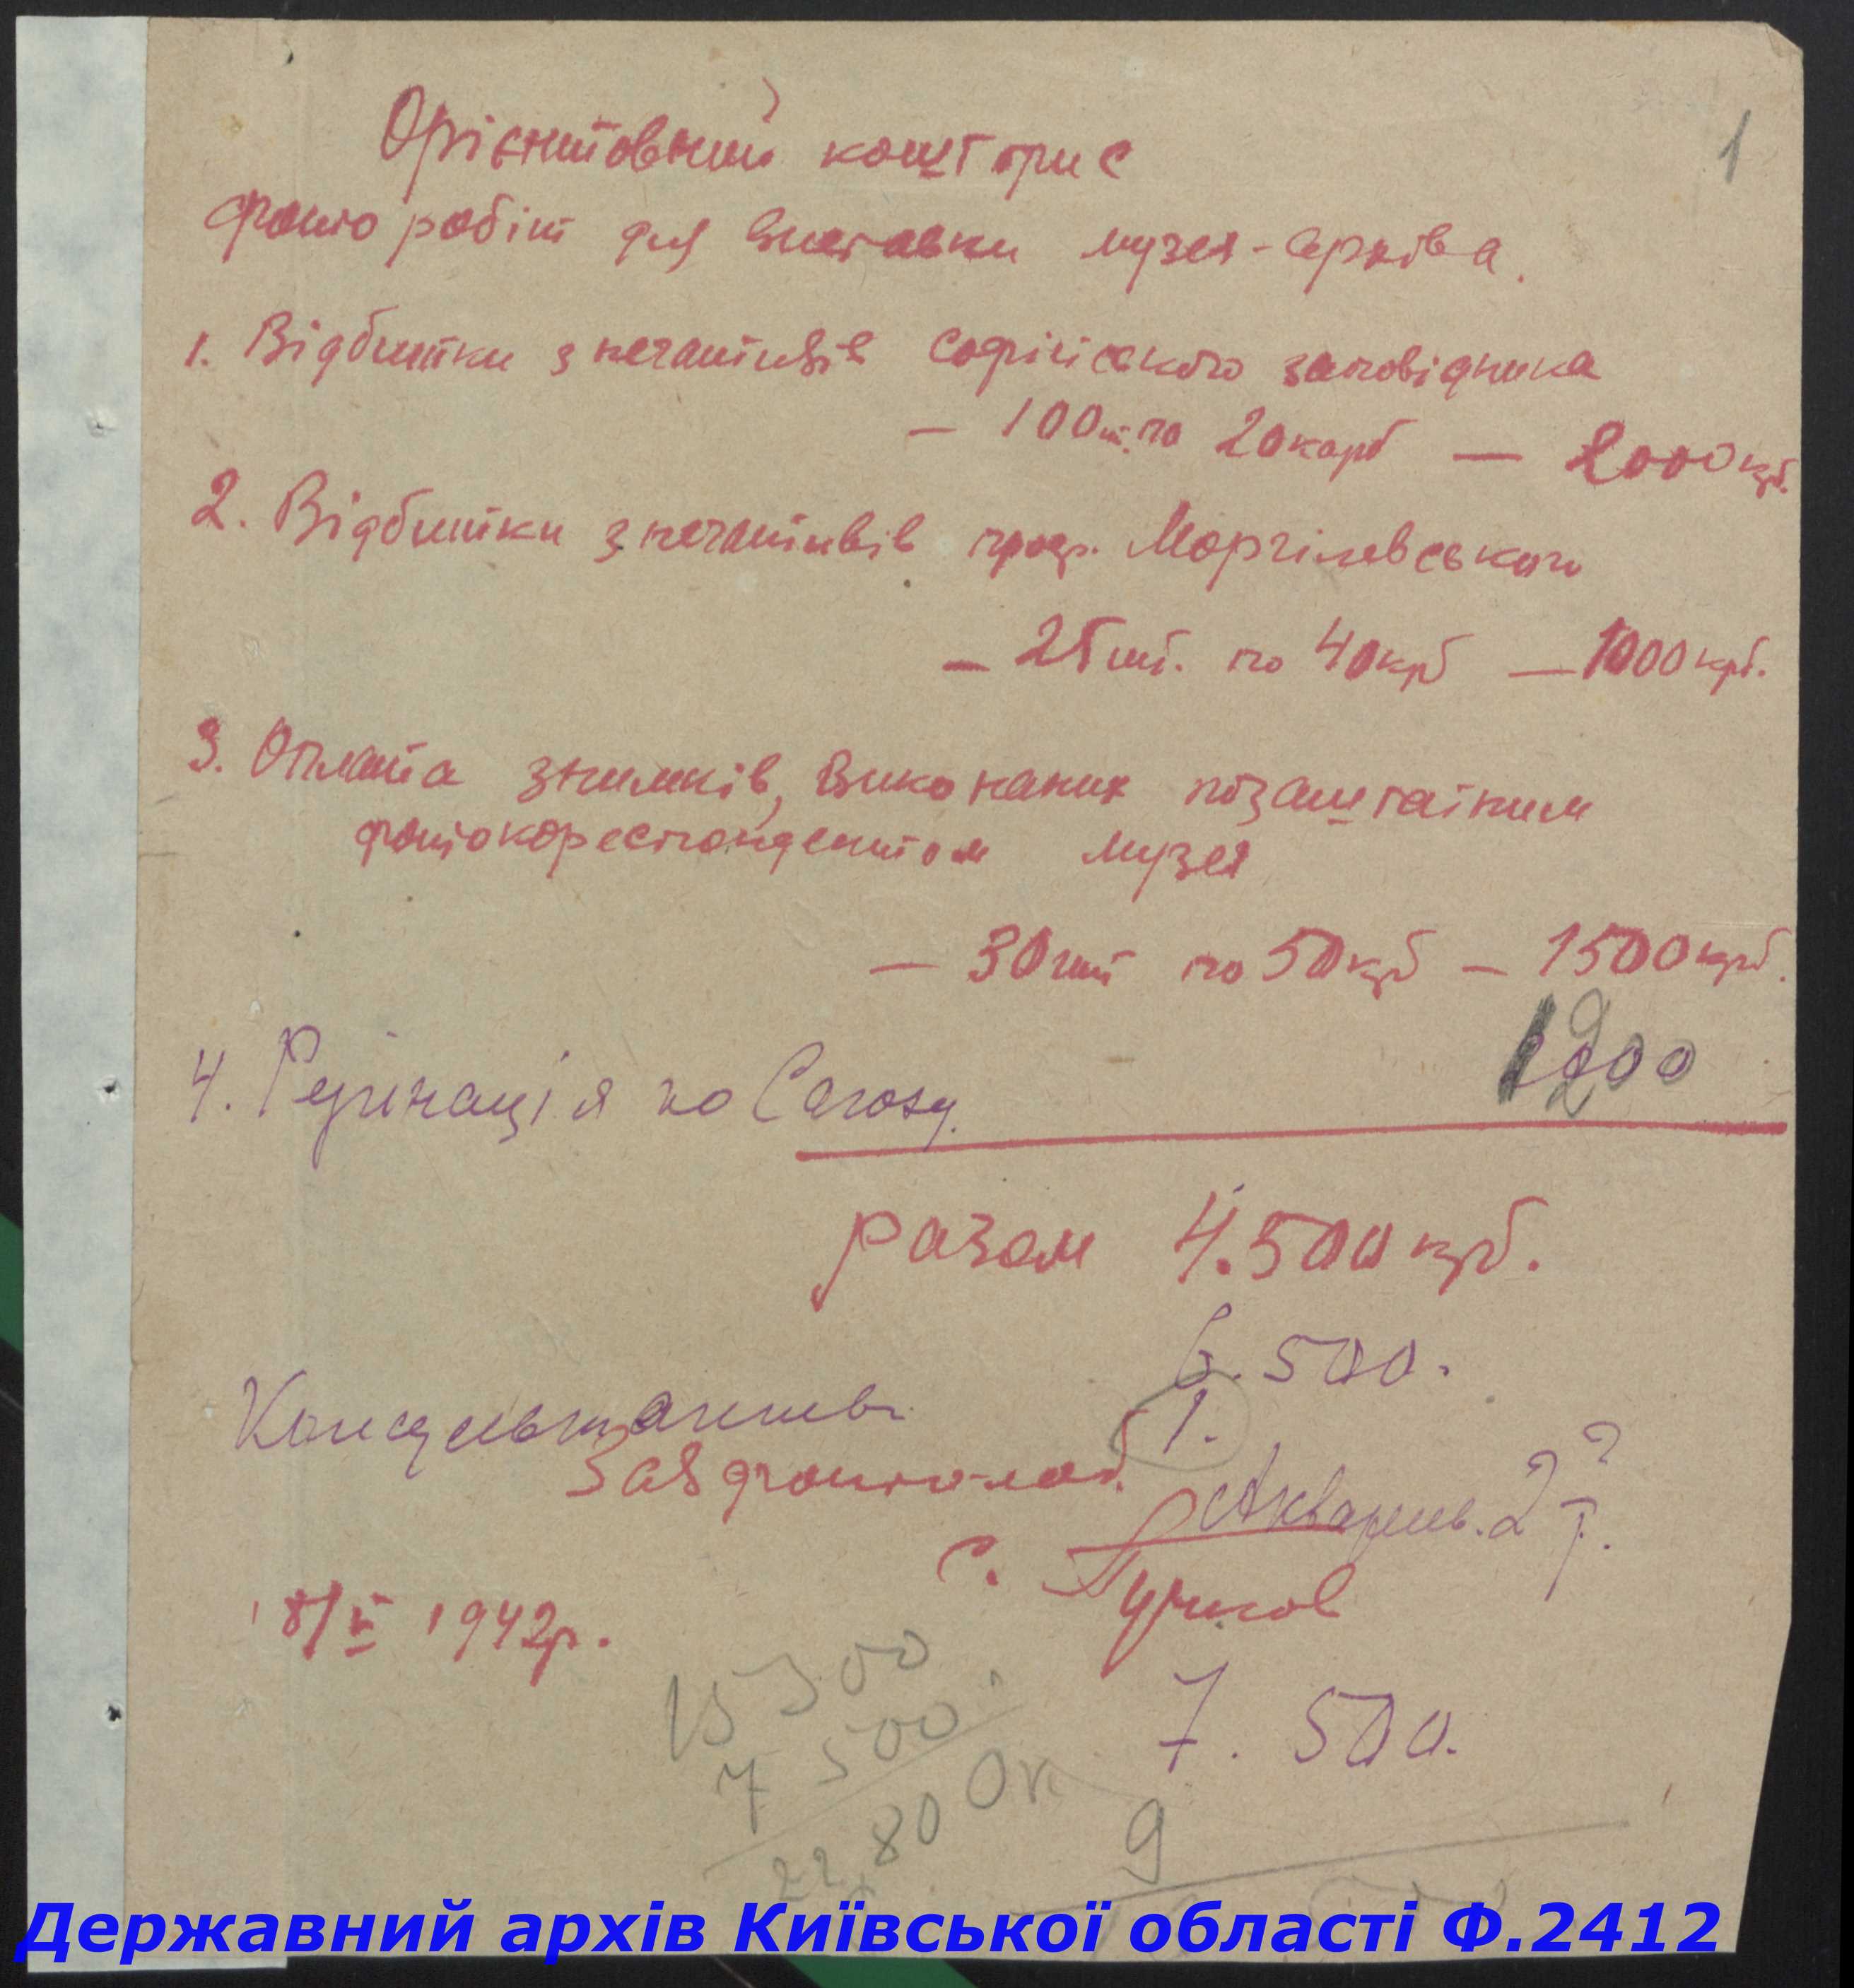 1
Орієнтовний кошторис
фото робіт для виставки музея-архіва.
1. Відбитки з негативів Софійського заповідника
— 100 шт. по 20 карб — 2000 крб.
2. Відбитки з негативів проф. Моргілевського
— 25 шт. по 40 крб — 1000 крб.
3. Оплата знимків, виконаних позаштатним
фотокореспондентом музея
— 30 шт по 50 крб — 1500 крб.
4. по 1200
разом 4.500 крб.
6.500.
1.
Зав фото-лаб.
Акварель. 2 т. ?
С.
1942р.
7.500.
15 300
7 500
22,800
9
Державний архів Київської області Ф.2412